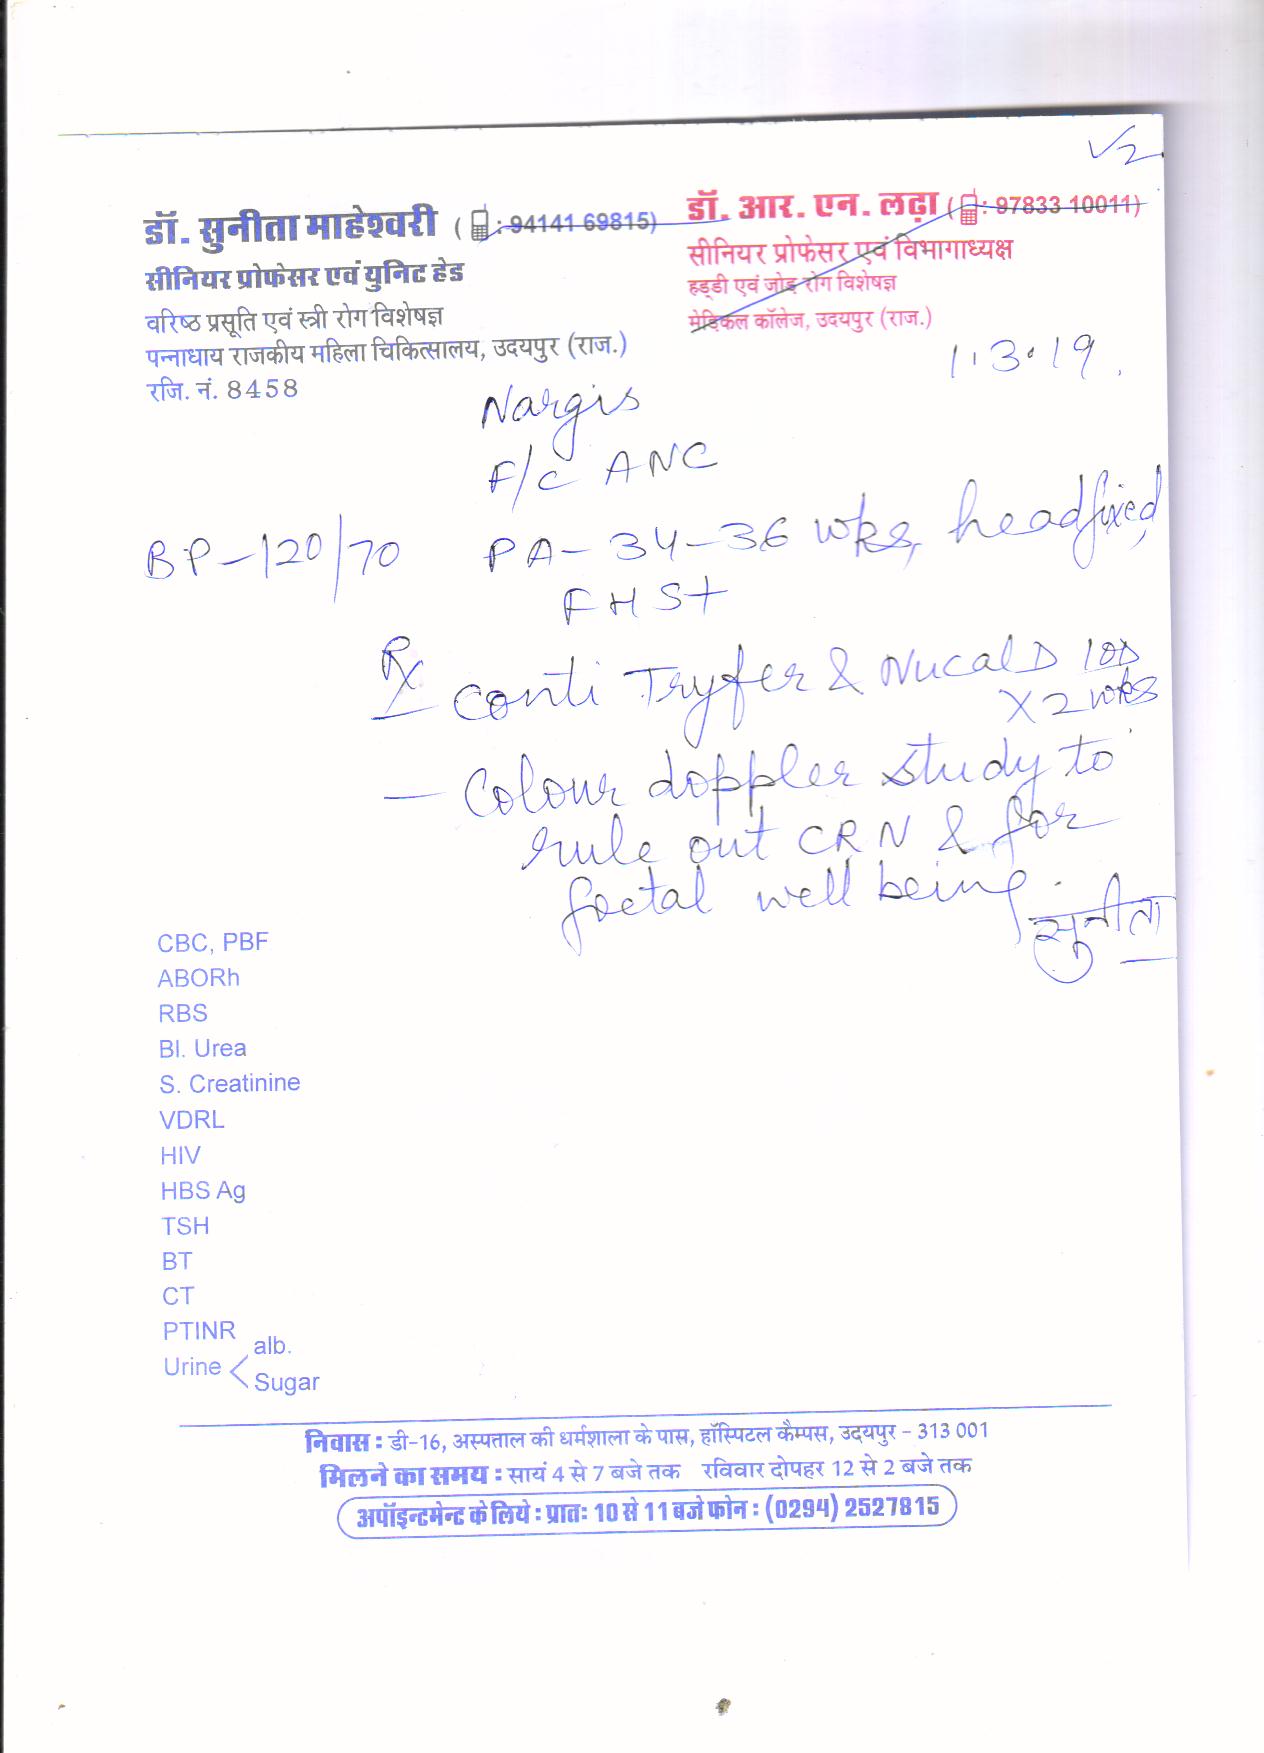 √2
डॉ. सुनीता माहेश्वरी (: 94141 69815)
सीनियर प्रोफेसर एवं युनिट हेड
वरिष्ठ प्रसूति एवं स्त्री रोग विशेषज्ञ
पन्नाधाय राजकीय महिला चिकित्सालय, उदयपुर (राज.)
रजि. नं. 8458
डॉ. आर. एन. लढ़ा (: 97833 10011)
सीनियर प्रोफेसर एवं विभागाध्यक्ष
हड्डी एवं जोड़ रोग विशेषज्ञ
मेडिकल कॉलेज, उदयपुर (राज.)
1.3.19.
Nargis
F/C ANC
BP-120/70 PA-34-36 wks, headfixed,
FHS+
Rx
Conti Tryfer & Nucal D 1OD
X 2 wks
- Colour doppler study to
rule out CRN & for
foetal well being.
सुनीता
CBC, PBF
ABORh
RBS
Bl. Urea
S. Creatinine
VDRL
HIV
HBS Ag
TSH
BT
CT
PTINR
Urine < alb.
Sugar
निवास : डी-16, अस्पताल की धर्मशाला के पास, हॉस्पिटल कैम्पस, उदयपुर - 313 001
मिलने का समय : सायं 4 से 7 बजे तक रविवार दोपहर 12 से 2 बजे तक
अपॉइन्टमेन्ट के लिये : प्रातः 10 से 11 बजे फोन : (0294) 2527815